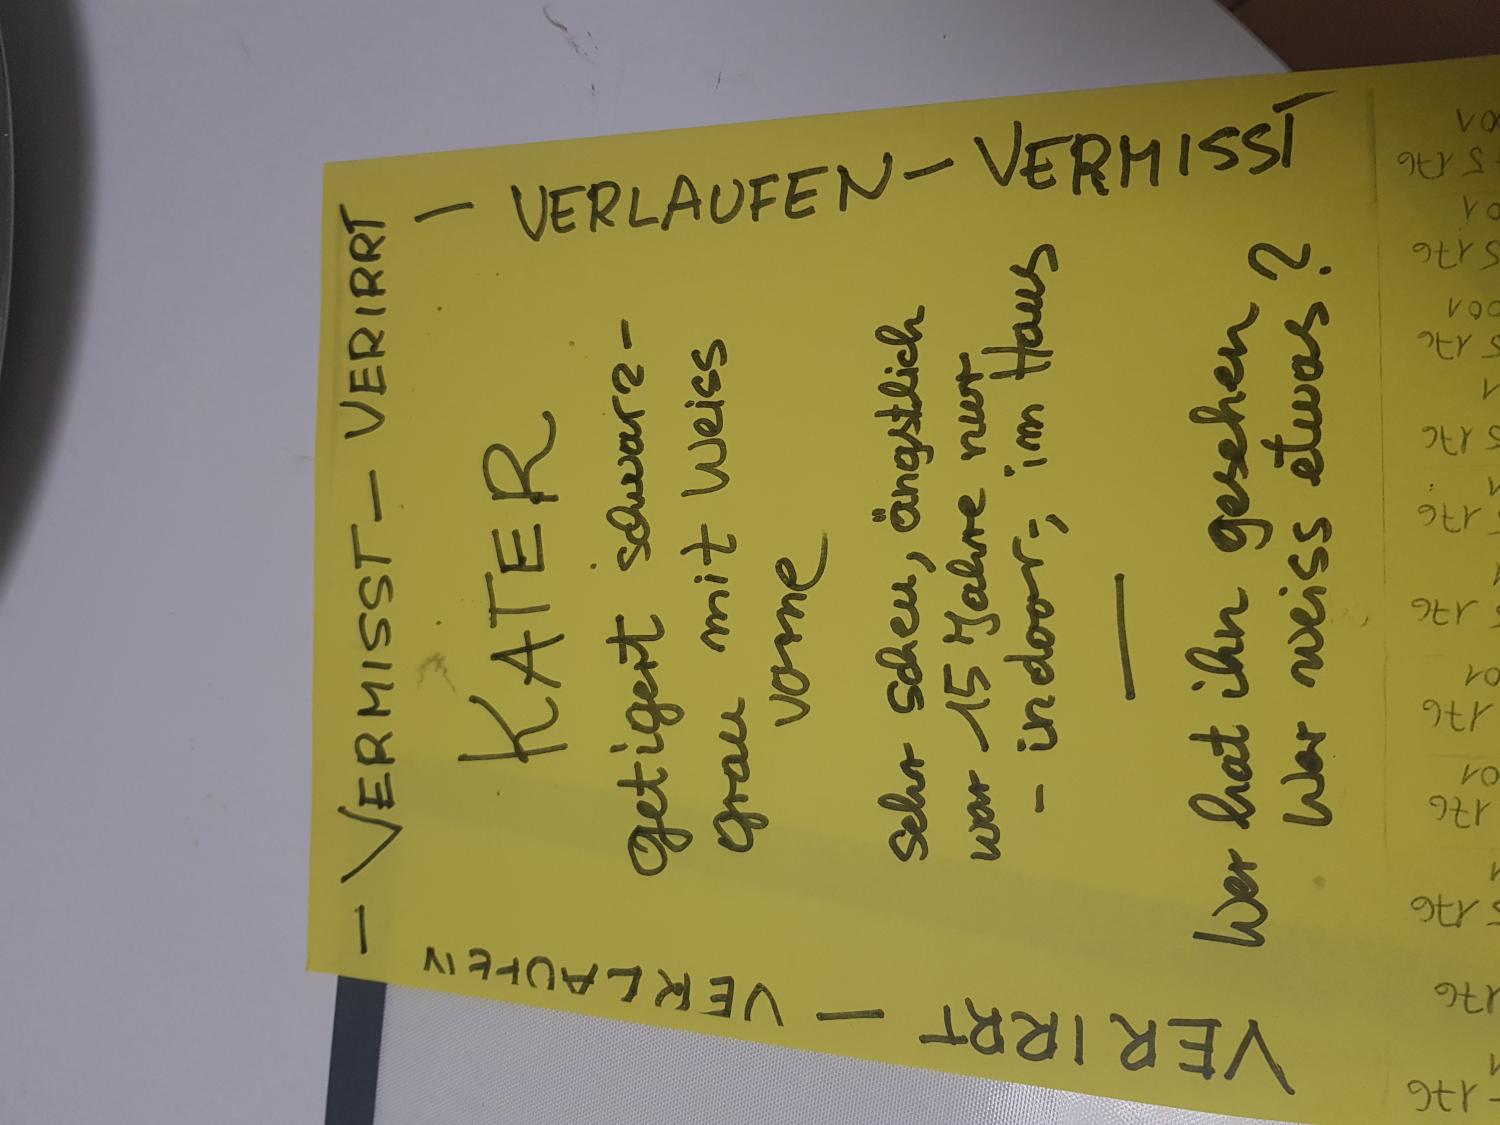 — VERMISST — VERIRRT — VERLAUFEN — VERMISST
VERIRRT — VERLAUFEN
KATER
getigert schwarz-
grau mit weiss
vorne
sehr scheu, ängstlich
war 15 Jahre nur
- indoor-, im Haus
—
Wer hat ihn gesehen
Wer weiss etwas?